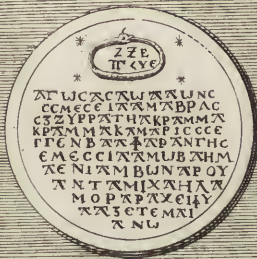 ΖΖΕ
ΠΚΥΕ
ΑΓѠϹΑϹΑѠΑΑѠΝϹ
ϹϹΜΕϹΕΙΑΑΜΑΒΡΑϹ
ϹΖΖΥΡΡΑΤΗΑΚΡΑΜΜΑ
ΚΡΑΜΜΑΚΑΜΑΡΙϹϹϹΕ
ΓΓΕΝΒΑΑΦΑΡΑΝΤΗϹ
ΕΜΕϹϹΙΑΑΜѠΒΑΗΜ
ΑΕΝΙΑΜΒѠΝΑΡΟΥ
ΑΝΤΑΜΙΧΑΗΛΑ
ΜΟΡΑΡΑΧΕΙΦΥ
ΑΑΖΕΤΕΜΑΙ
ΑΝѠ